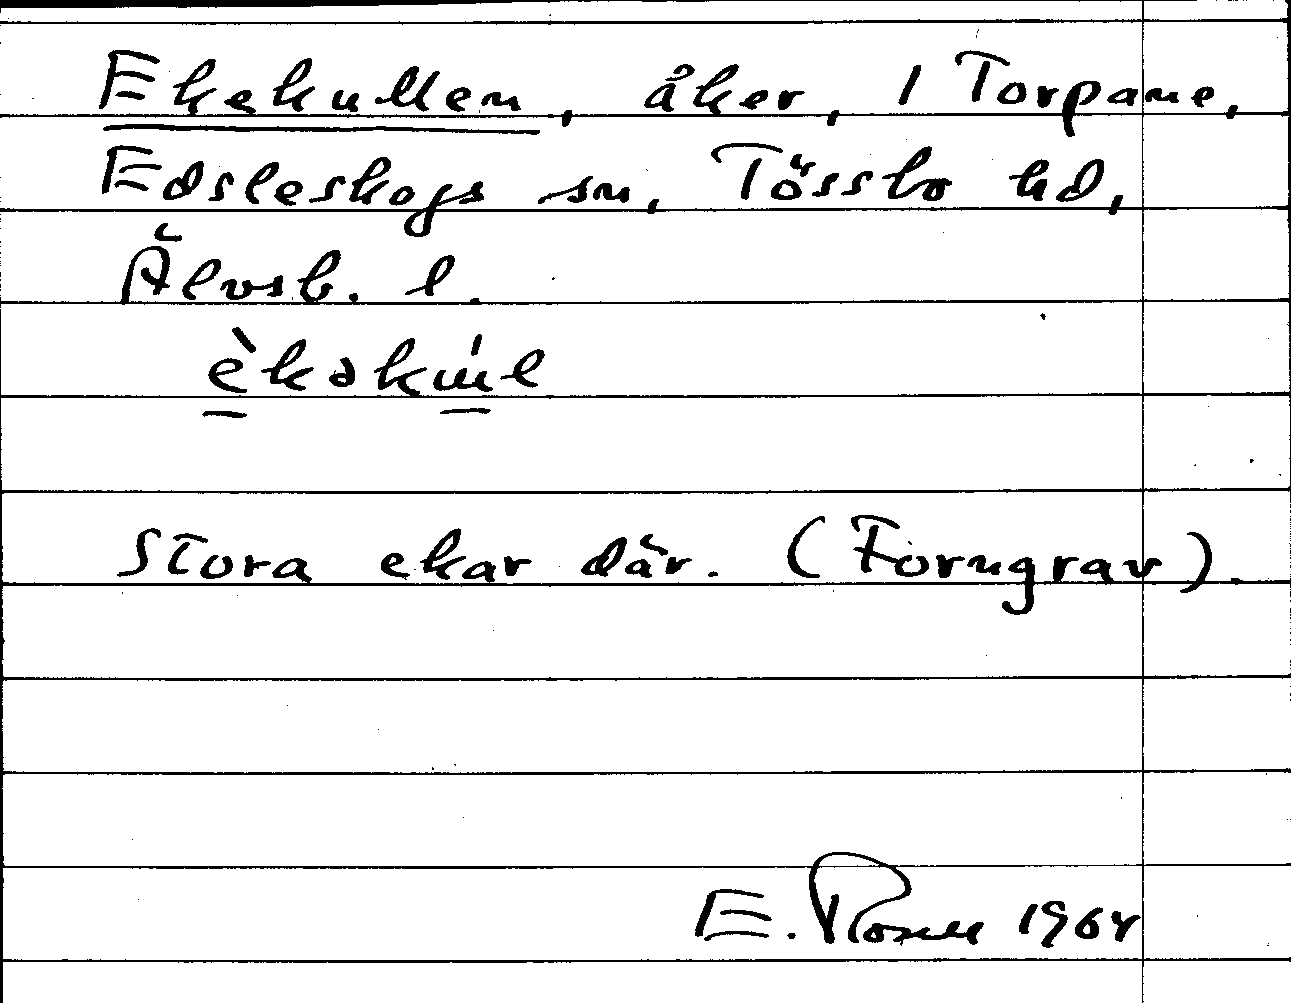 Ekekullen, åker, 1 Torpane,
Edsleskogs sn, Tössbo hd,
Älvsb. l.
Stora ekar där. (Forngrav).
E. Rosell 1964